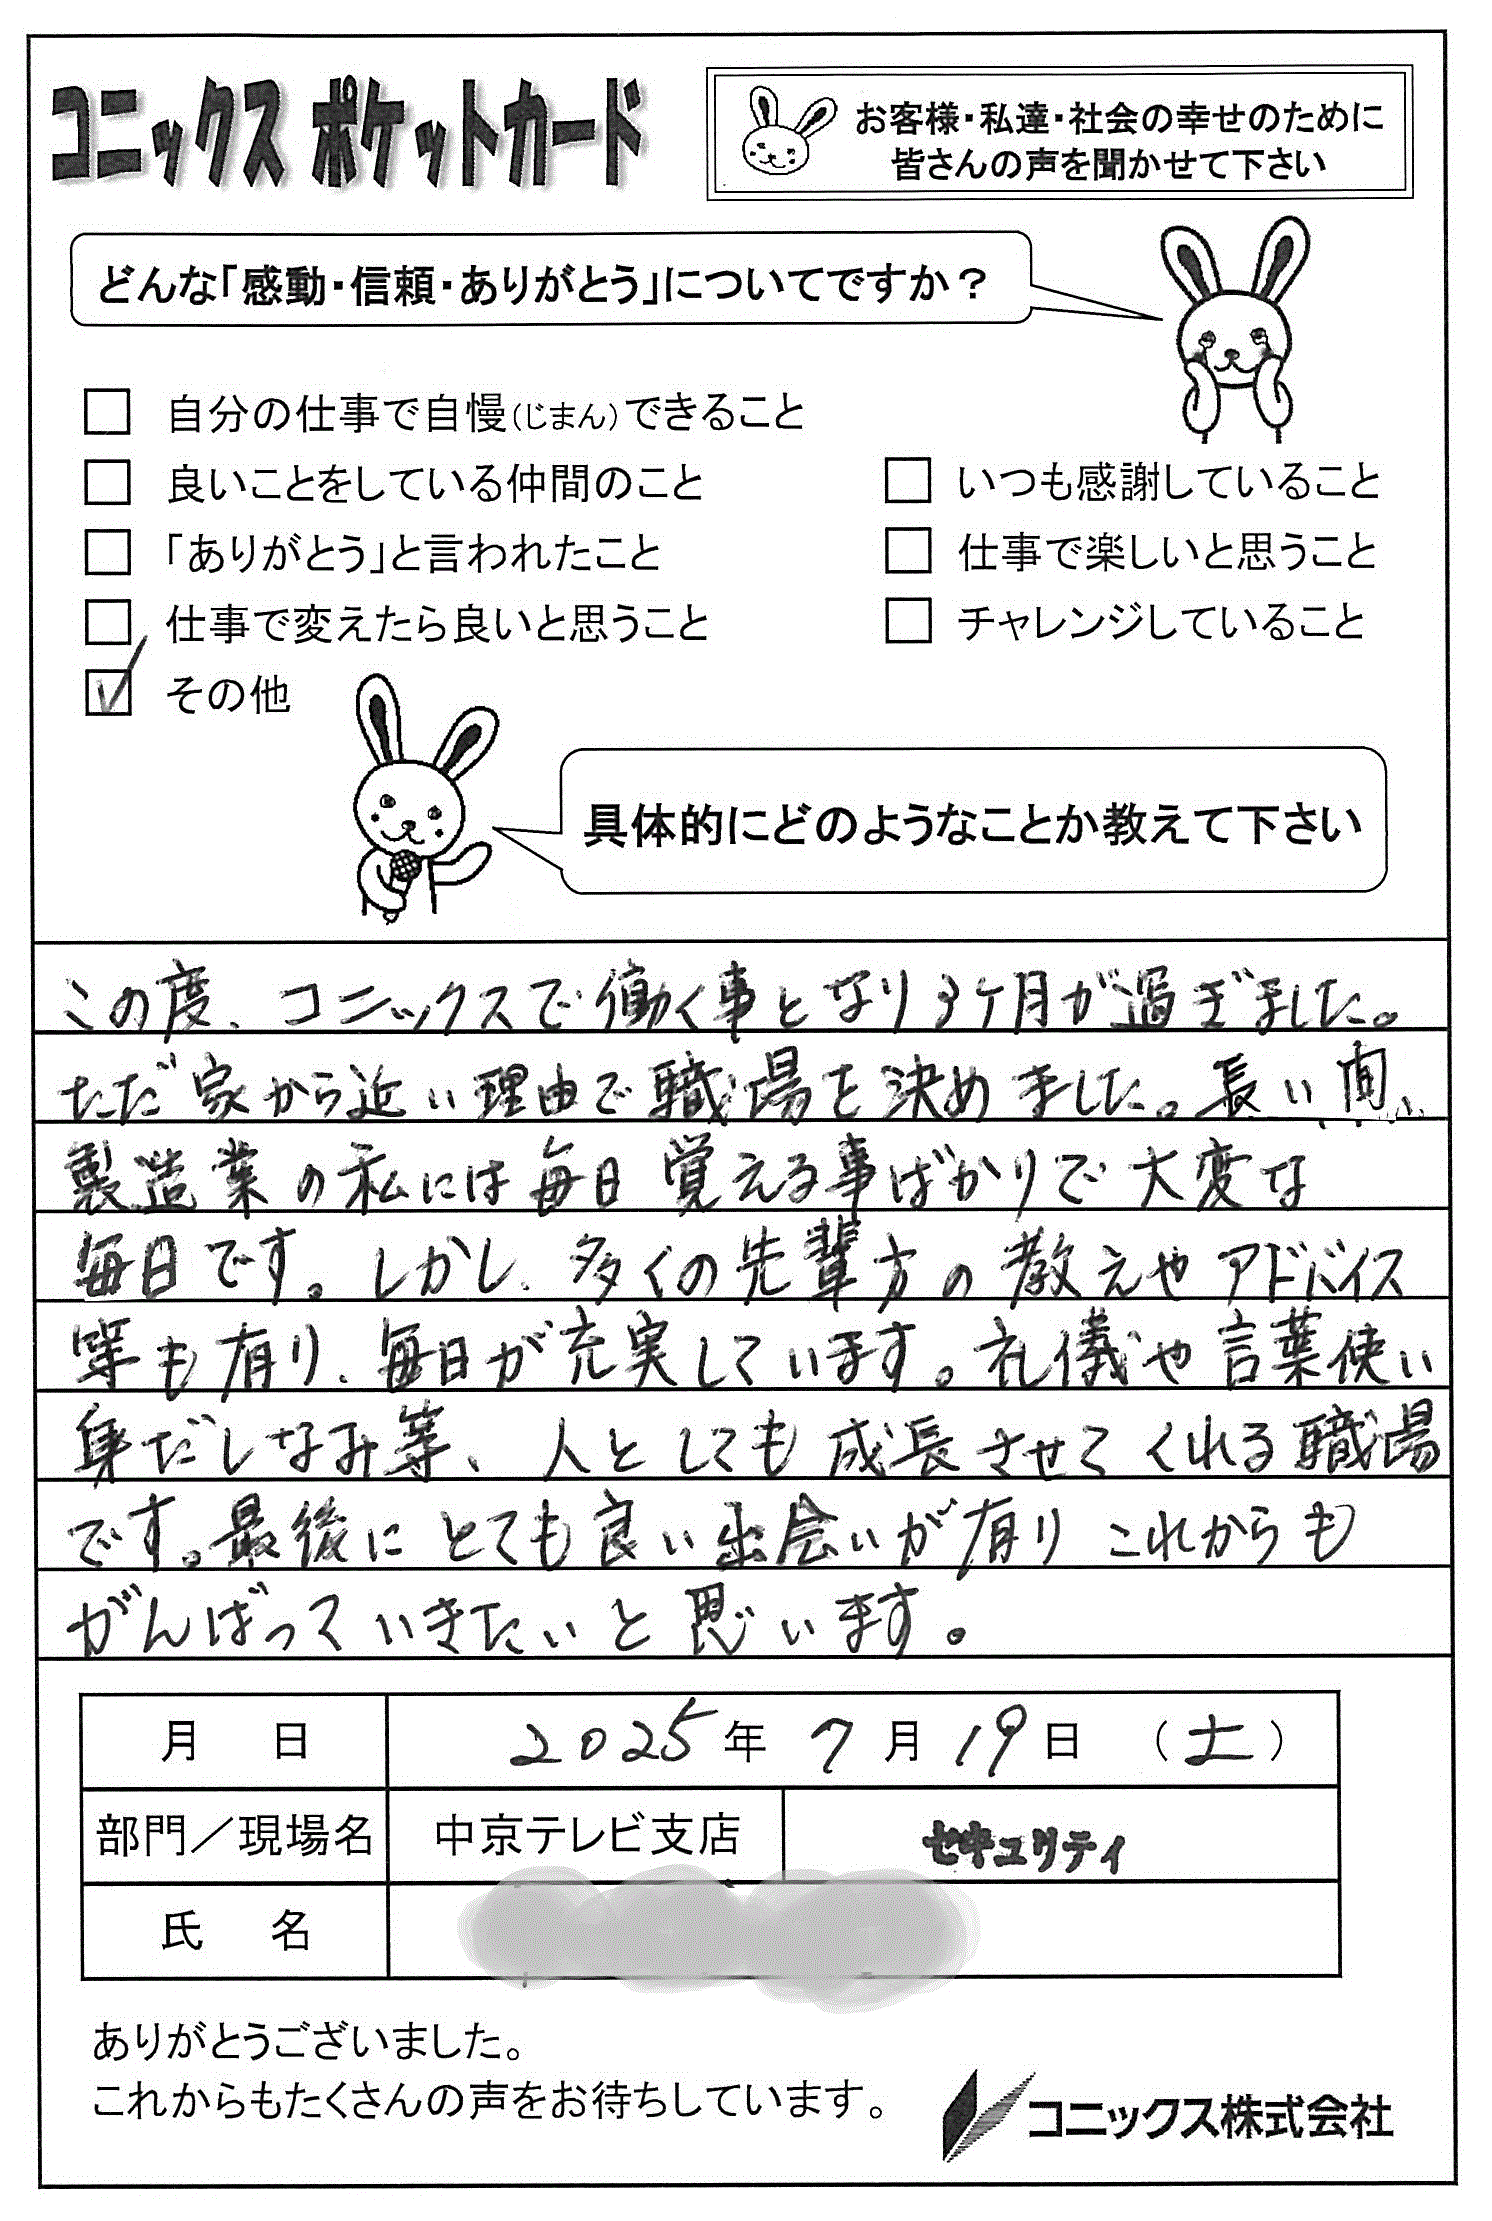 コニックス ポケットカード
お客様・私達・社会の幸せのために
皆さんの声を聞かせて下さい
どんな「感動・信頼・ありがとう」についてですか？
自分の仕事で自慢(じまん)できること
良いことをしている仲間のこと
いつも感謝していること
「ありがとう」と言われたこと
仕事で楽しいと思うこと
仕事で変えたら良いと思うこと
チャレンジしていること
その他
具体的にどのようなことか教えて下さい
この度、コニックスで働く事となり3ケ月が過ぎました。
ただ家から近い理由で職場を決めました。長い間、
製造業の私には毎日覚える事ばかりで大変な
毎日です。しかし、多くの先輩方の教えやアドバイス
等も有り、毎日が充実しています。礼儀や言葉使い
身だしなみ等、人としても成長させてくれる職場
です。最後にとても良い出会いが有りこれからも
がんばっていきたいと思います。
月 日 2025年 7月 19日 （土）
部門／現場名 中京テレビ支店 セキュリティ
氏 名
ありがとうございました。
これからもたくさんの声をお待ちしています。
コニックス株式会社